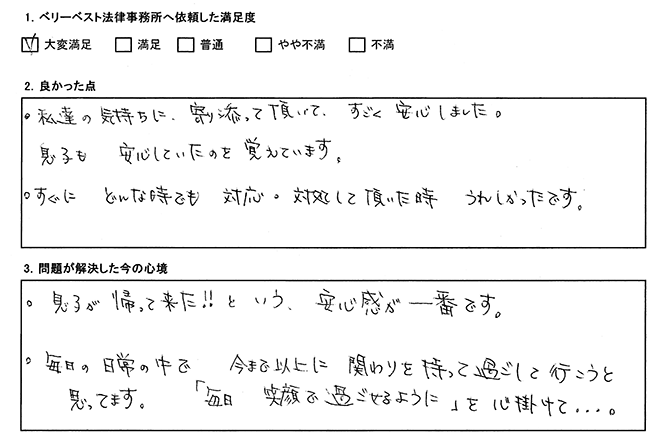 1. ベリーベスト法律事務所へ依頼した満足度
☑ 大変満足 □ 満足 □ 普通 □ やや不満 □ 不満
2. 良かった点
。私達の気持ちに、寄り添って頂いて、すごく安心しました。
息子も 安心していたのを覚えています。
。すぐに どんな時でも 対応・対処して頂いた時 うれしかったです。
3. 問題が解決した今の心境
。息子が帰って来た!!という、安心感が一番です。
。毎日の日常の中で 今まで以上に 関わりを持って過ごして行こうと
思ってます。「毎日 笑顔で過ごせるように」を心掛けて...。